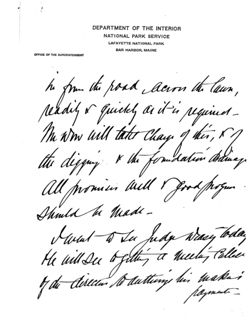 DEPARTMENT OF THE INTERIOR
NATIONAL PARK SERVICE
LAFAYETTE NATIONAL PARK
BAR HARBOR, MAINE
OFFICE OF THE SUPERINTENDENT
in from the road across the lawn,
readily & quickly as it is required—
will take charge of this, & of
the digging & the foundation drainage
All promises well & good progress
should be made—
I went to see Judge today
He will see to getting a meeting called
of the directors to authorize his making
payments